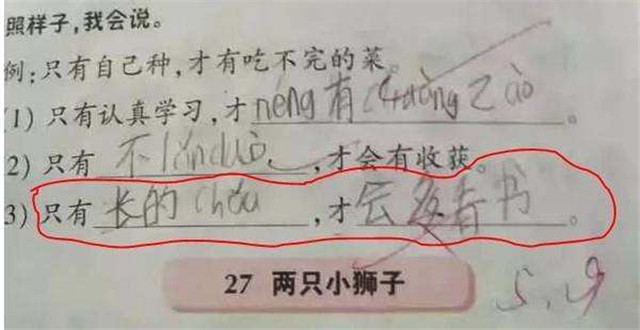 照样子,我会说。
例:只有自己种,才有吃不完的菜。
(1) 只有认真学习,才néng有chuàngZào。
2) 只有不lǎnduò,才会有收获。
3) 只有长的chǒu,才会多看书。
27 两只小狮子
5.9